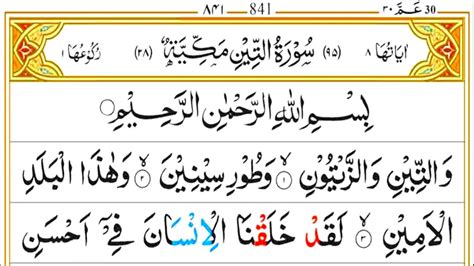 ٨٤١ 841 عَمَّ ٣٠ 30
اٰيَاتُهَا ٨ (٩٥) سُوْرَةُ التِّيْنِ مَكِّيَّةٌ (٢٨) رُكُوْعُهَا ١
بِسْمِ اللّٰهِ الرَّحْمٰنِ الرَّحِيْمِ
وَالتِّيْنِ وَالزَّيْتُوْنِ ١ وَطُوْرِ سِيْنِيْنَ ٢ وَهٰذَا الْبَلَدِ
الْاَمِيْنِ ٣ لَقَدْ خَلَقْنَا الْاِنْسَانَ فِيْٓ اَحْسَنِ